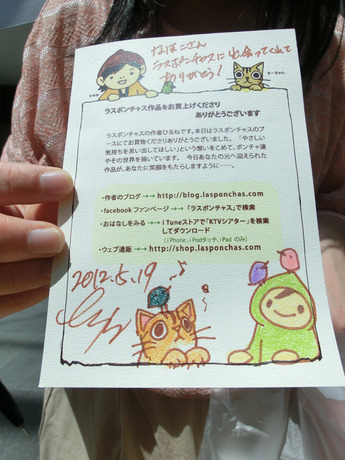 なはこさん
ラスポンチャスに出会ってくれて
ありがとう!
ひるね
ちーちゃん
ラスポンチャス作品をお買上げくださり
ありがとうございます
ラスポンチャスの作者ひるねです。本日はラスポンチャスのブ
ースにてお買物くださりありがとうございました。『やさしい
気持ちを思い出してほしい』という想いをこめて、ポンチャ達
やその世界を描いています。 今日あなたの元へ迎えられた
作品が、あなたに笑顔をもたらしますように……。
・作者のブログ →→ http://blog.lasponchas.com
・facebook ファンページ →→「ラスポンチャス」で検索
・おはなしをみる →→ i Tuneストアで「KTVシアター」を検索
してダウンロード
(i Phone、i Podタッチ、i Pad のみ)
・ウェブ通販 →→ http://shop.lasponchas.com
2012.5.19